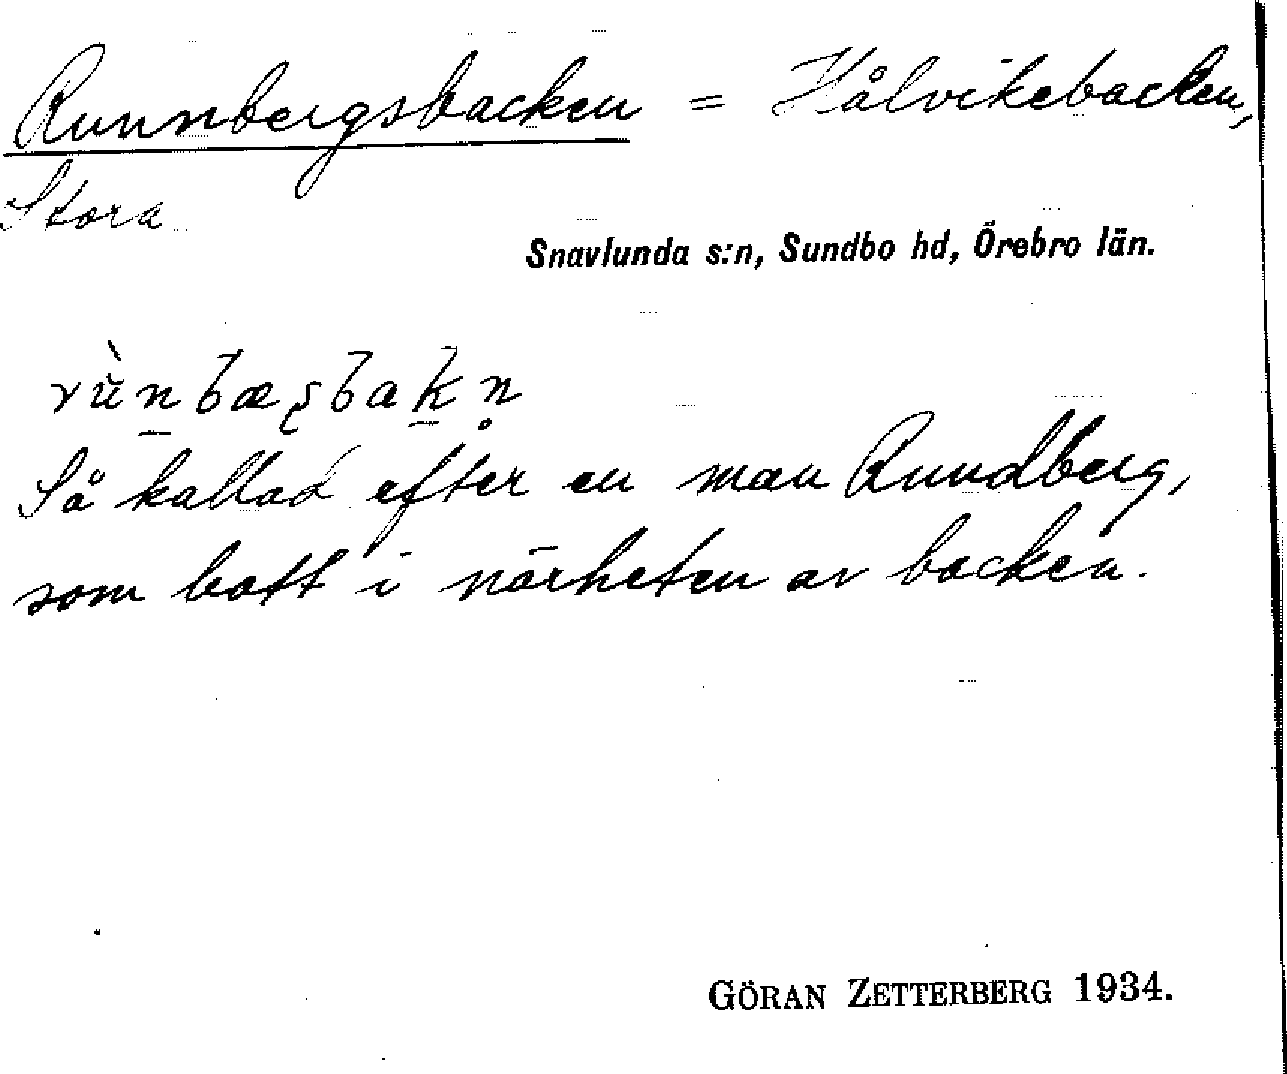 Runnbergsbacken = Hålvikebacken,
Stora
Snavlunda s:n, Sundbo hd, Örebro län.
Så kallad efter en man Rundberg,
som bott i närheten av backen.
GÖRAN ZETTERBERG 1934.